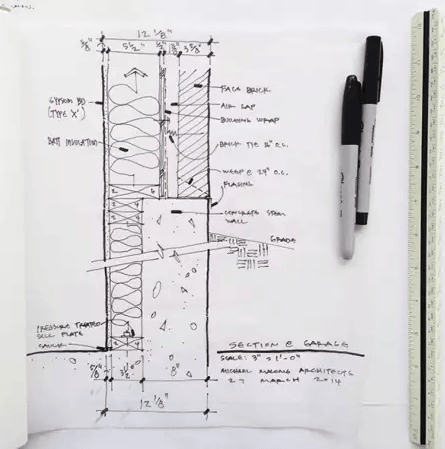 12 1/8"
5/8"
5 1/2"
1/2"
3 5/8"
GYPSUM BD
(TYPE 'X')
BATT INSULATION
FACE BRICK
AIR GAP
BUILDING WRAP
BRICK TIE 16" O.C.
WEEP @ 24" O.C.
FLASHING
CONCRETE STEM
WALL
GRADE
PRESSURE TREATED
SILL PLATE
CAULK
3 1/2"
8"
12 1/8"
SECTION @ GARAGE
SCALE: 3" = 1'-0"
MICHAEL MALONE ARCHITECTS
27 MARCH 2014